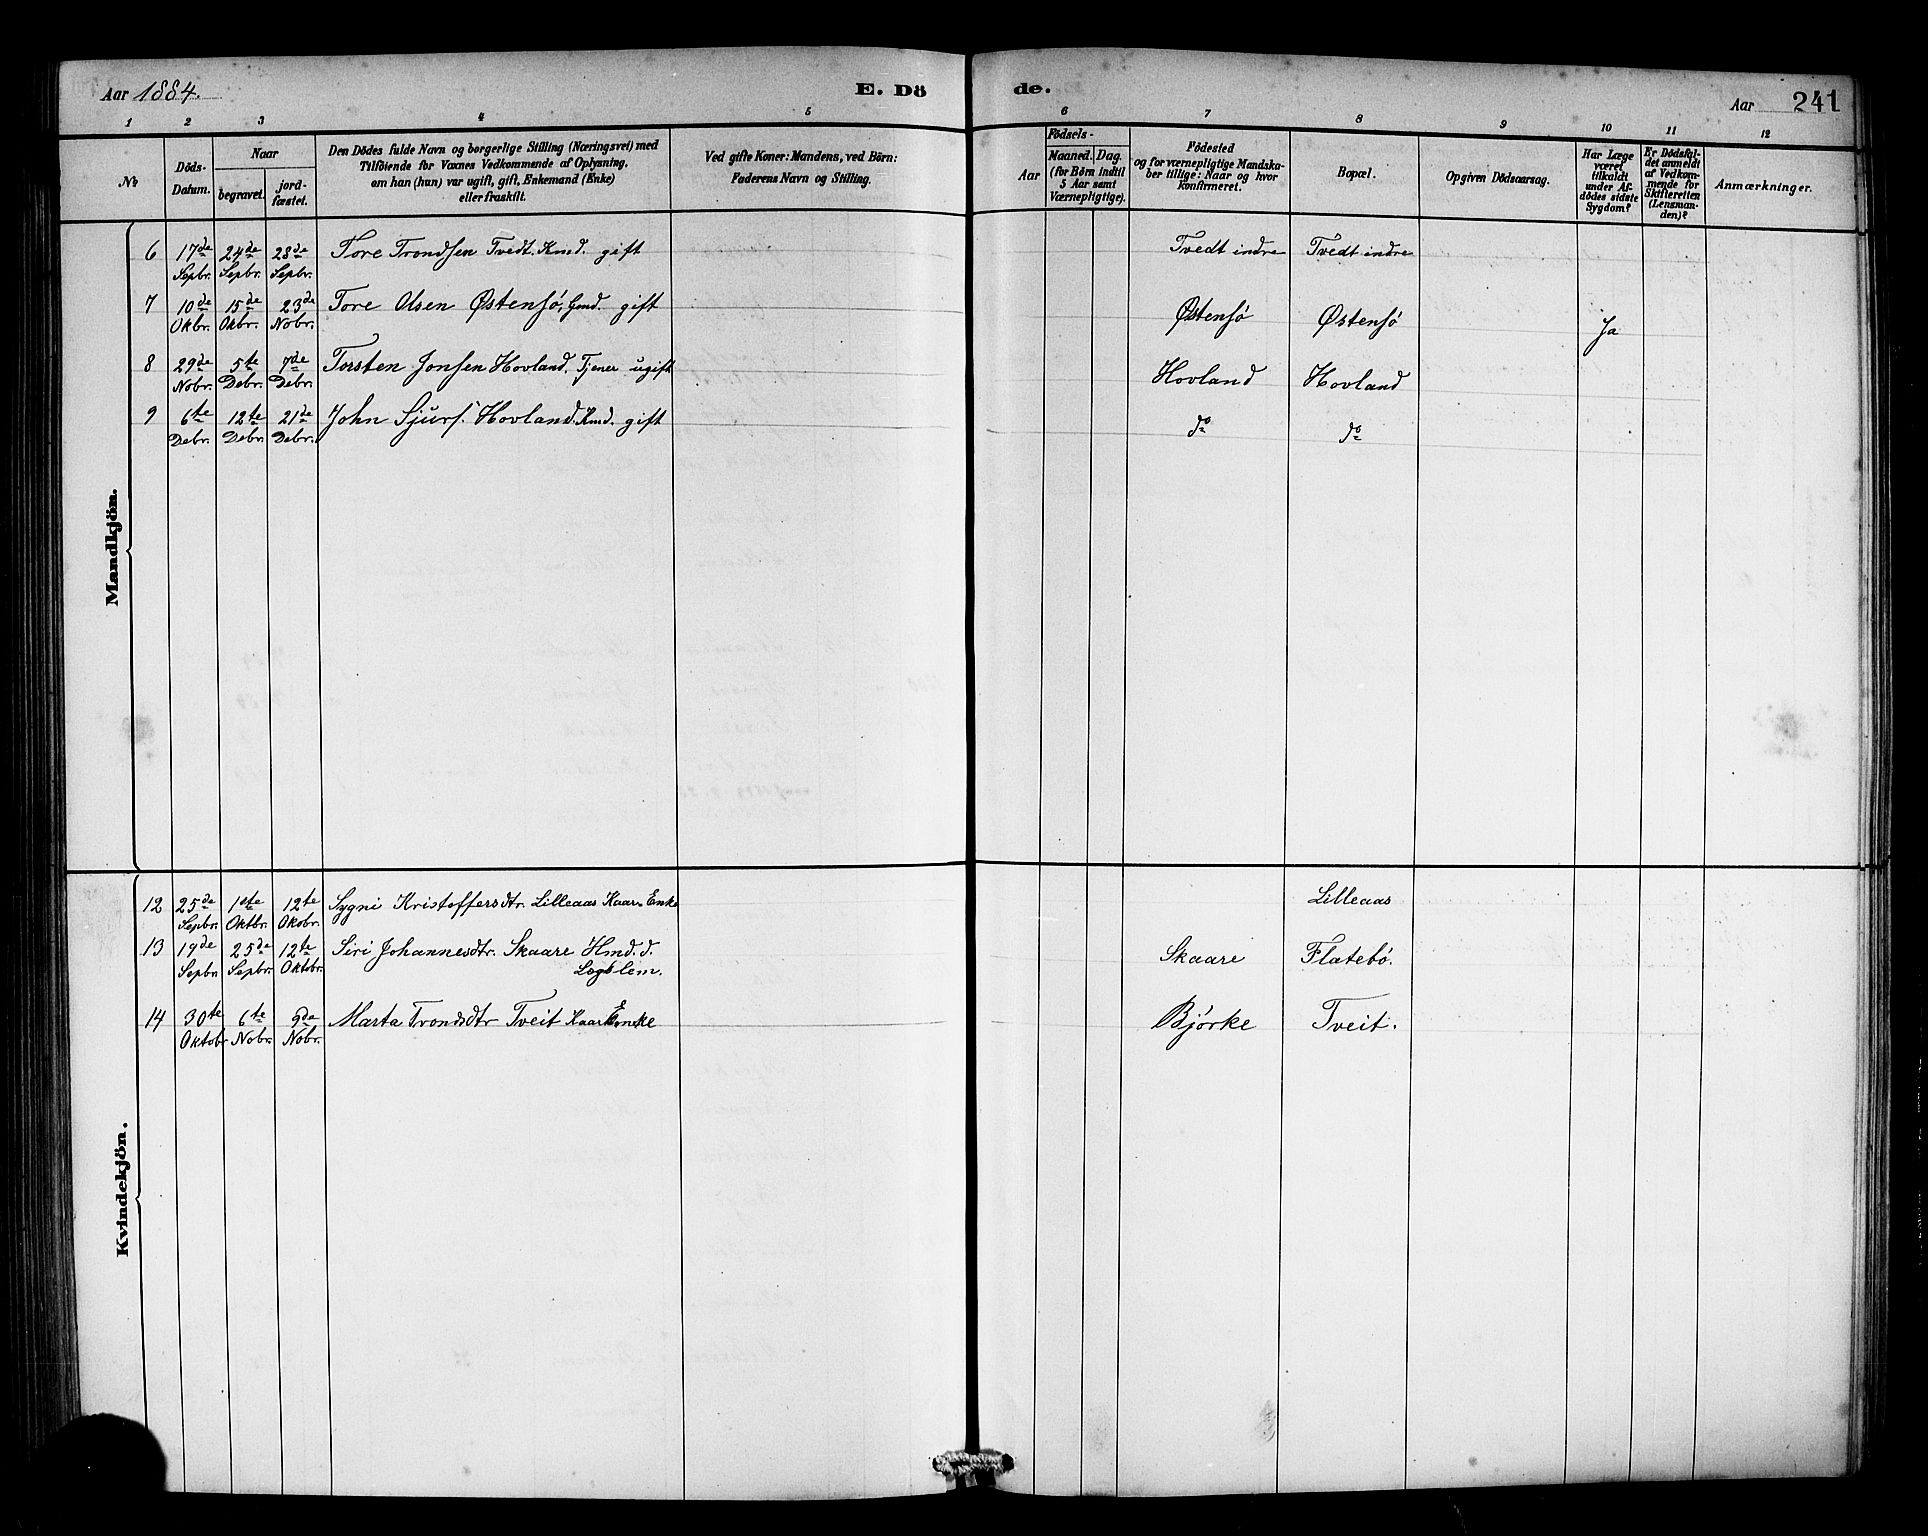 Aar 1884. E. Dö de. Aar 241
1 2 3 4 5 6 7 8 9 10 11 12
№
Döds-Datum.
Naar
begravet.
jord-fæstet.
Den Dödes fulde Navn og borgerlige Stilling (Næringsvei) med
Tilföiende for Voxnes Vedkommende af Oplysning,
om han (hun) var ugift, gift, Enkemand (Enke)
eller fraskilt.
Ved gifte Koner: Mandens, ved Börn:
Faderens Navn og Stilling.
Födsels-
Aar
Maaned. Dag.
(for Börn indtil
5 Aar samt
Værnepligtige).
Födested
og for værnepligtige Mandska-
ber tillige: Naar og hvor
konfirmeret.
Bopæl.
Opgiven Dödsaarsag.
Har Læge
været
tilkaldt
under Af-
dödes sidste
Sygdom?
Er Dödsfal-
det anmeldt
af Vedkom-
mende for
Skifteretten
(Lensman-
den)?
Anmærkninger.
Mandkjön.
6 17de Sepbr. 24de Sepbr. 28de Sepbr. Tore Trondsen Tvedt. Kmd. gift Tvedt indre Tvedt indre
7 10de Okbr. 15de Okbr. 23de Nobr. Tore Olsen Østensö, Gmd. gift Østensö Østensö Ja
8 29de Nobr. 5te Debr. 7de Debr. Torsten Jonsen Hovland. Tjener ugift Hovland Hovland
9 6te Debr. 12te Debr. 21de Debr. John Sjurs. Hovland. Kmd. gift do do
Kvindekjön.
12 25de Sepbr. 1ste Oktbr. 12te Okobr. Sygni Kristoffersdtr. Lilleaas Kaare Enke Lilleaas
13 19de Sepbr. 25de Sepbr. 12te Oktobr. Siri Johannesdtr. Skaare Hmd. d. Skaare Flatebö.
Lægslem.
14 30te Oktobr 6te Nobr. 9de Nobr. Marta Trondsdtr Tveit Kaar Enke Bjørke Tveit.